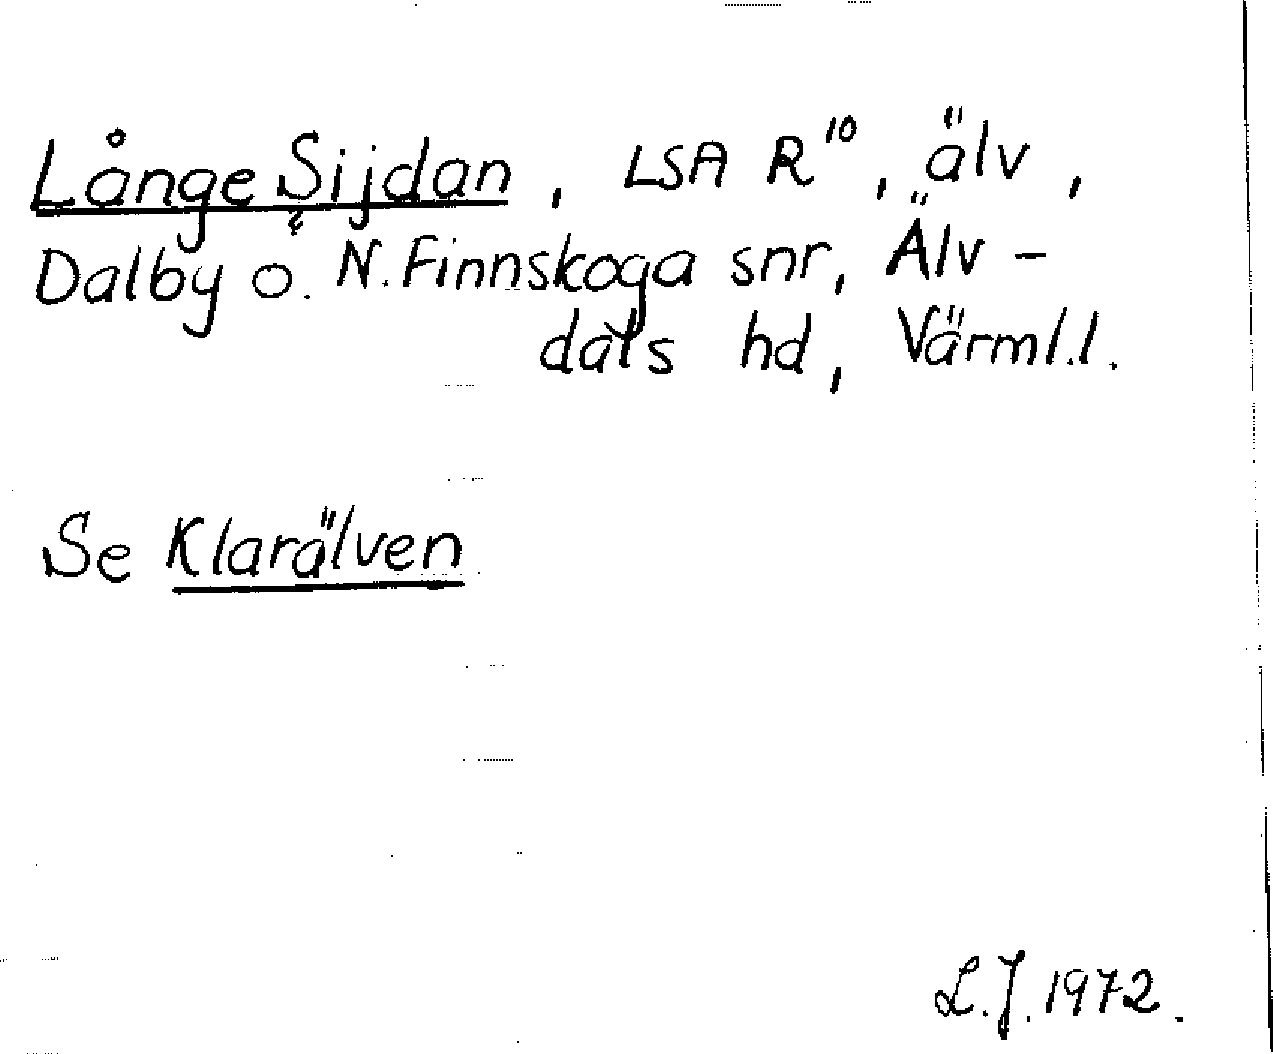 Långe Sijdan, LSA R¹⁰, älv,
Dalby o. N. Finnskoga snr, Älv-
dals hd, Värml.l.
Se Klarälven
L.J. 1972.